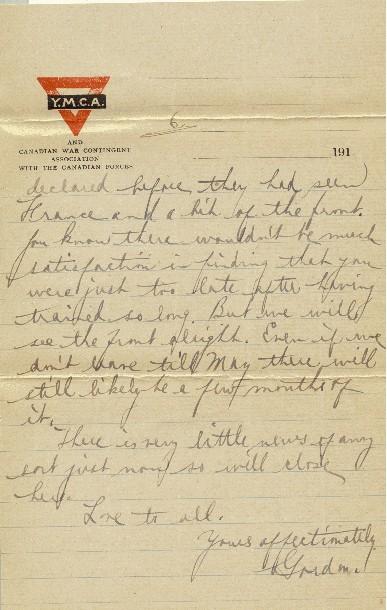 Y.M.C.A.
AND
CANADIAN WAR CONTINGENT
ASSOCIATION
WITH THE CANADIAN FORCES
6
191
declared before they had seen
France and a bit of the front.
you know there wouldn't be much
satisfaction in finding that you
were just too late after having
trained so long. But we will
see the front alright. Even if we
don't leave till May there will
still likely be a few months of
it.
There is very little news of any
sort just now so will close
here.
Love to all.
Yours affectimately
Gordon.